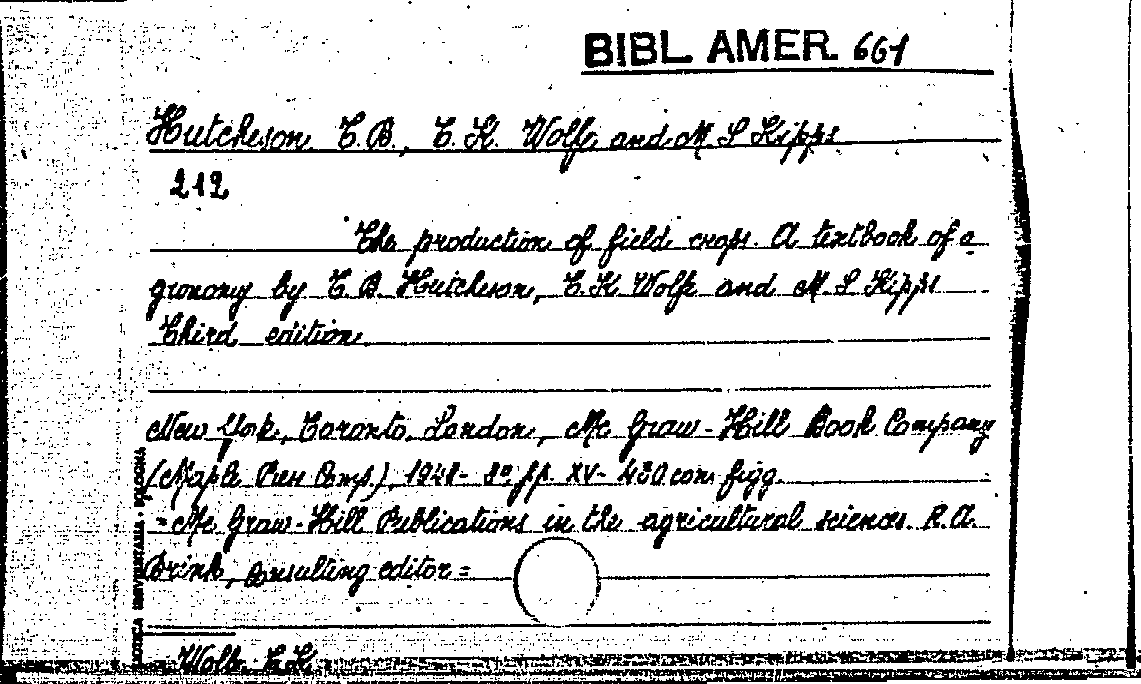 BIBL. AMER. 661
Hutcheson T. B., T. K. Wolfe and M S Kipps
212
The production of field crops. A textbook of a
gronomy by T. B. Hutcheson, T. K Wolfe and M S Kipps
Third edition
New York, Toronto, London, Mc Graw-Hill Book Company
(Maple Press Comp.), 1948- 8º, pp. XV- 430 con figg.
=Mc Graw-Hill Publications in the agricultural sciences. R. A.
Brink, consulting editor=
Wolfe T. K
BIBLIOTECA UNIVERSITARIA - BOLOGNA